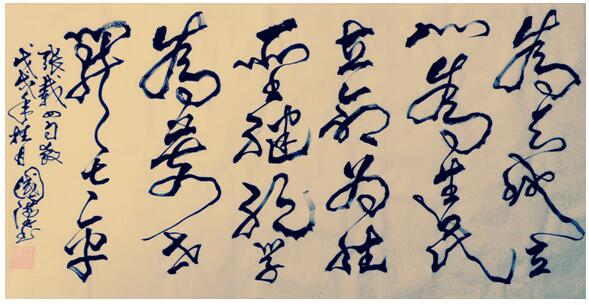 為天地立
心為生民
立命為往
聖繼絕學
為萬世
開太平
張載四句教
戊戌年桂月